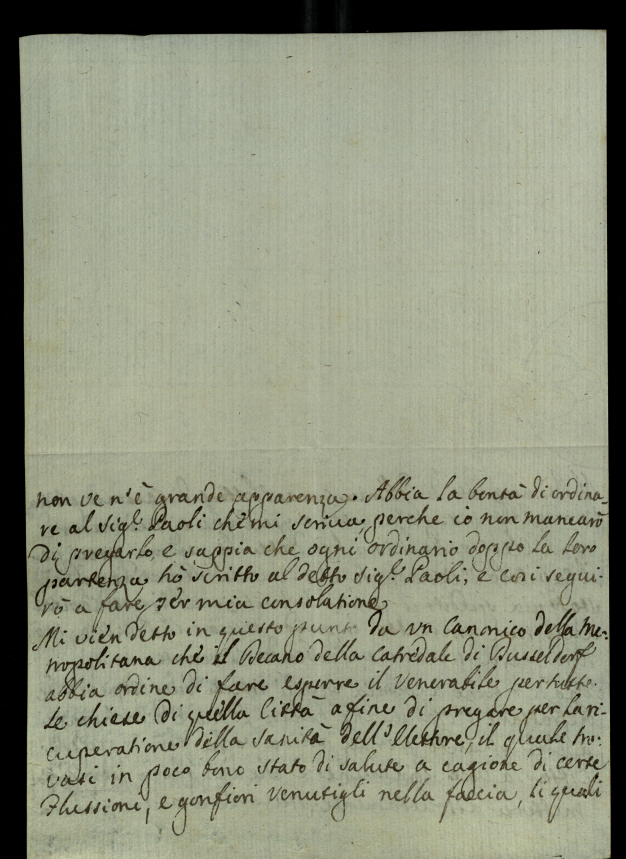 non ve n'è grande apparenza. Abbia la bontà di ordina-
re al Sig.r Paoli che mi scriva, perche io non mancarò
di pregarlo e sappia che ogni ordinario doppo la loro
partenza hò scritto al detto Sig.r Paoli, e così segui-
rò a fare per mia consolatione
Mi vien detto in questo punto da vn Canonico della Me-
tropolitana che il Decano della Catredale di Dusseldorf
abbia ordine di fare esporre il Venerabile per tutte
Le chiese di quella Città a fine di pregare per la ri-
cuperatione della sanità dell'Elettore, il quale tro-
vasi in poco bono stato di salute a cagione di certe
Flussioni, e gonfiori venutigli nella faccia, li quali